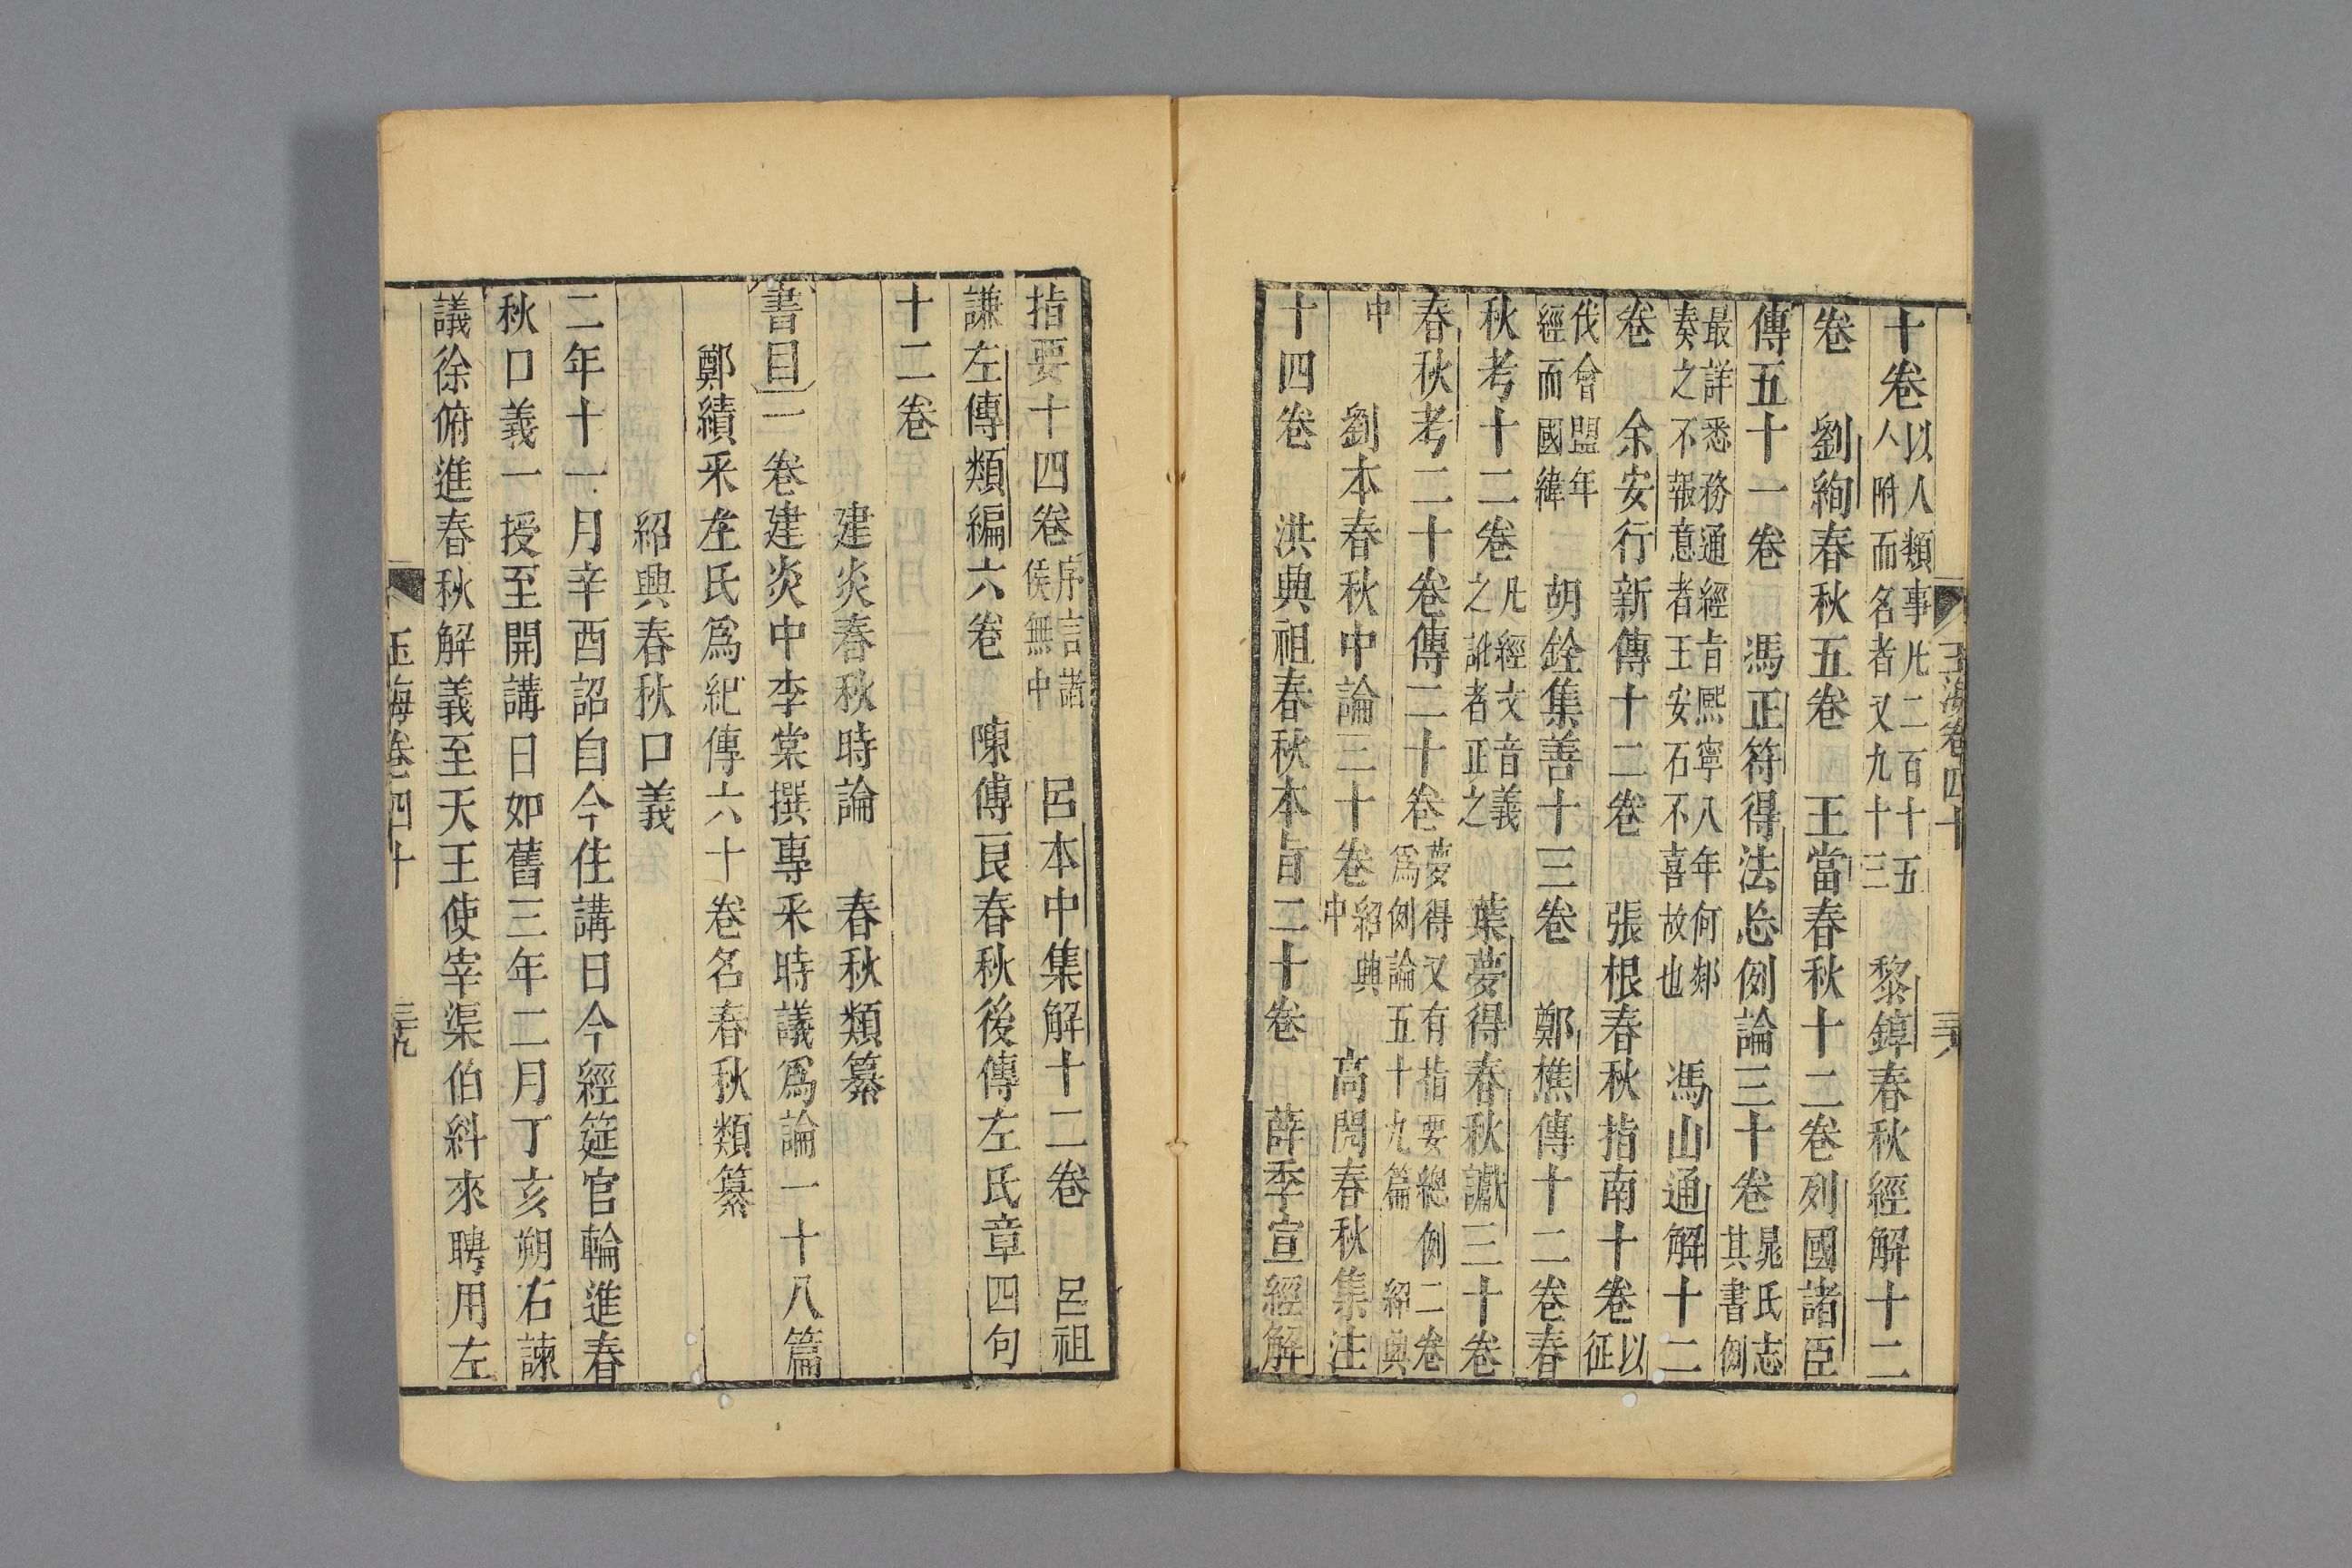 玉海卷四十
十卷以人類事凡二百十五人附而名者又九十三 黎錞春秋經解十二
卷 劉絢春秋五卷 王當春秋十二卷列國諸臣
傳五十一卷 馮正符得法忘例論三十卷晁氏志其書例
最詳悉務通經旨熙寧八年何郯奏之不報意者王安石不喜故也 馮山通解十二
卷 余安行新傳十二卷 張根春秋指南十卷以征
伐會盟年經而國緯 胡銓集善十三卷 鄭樵傳十二卷春
秋考十二卷凡經文音義之訛者正之 葉夢得春秋讞三十卷
春秋考二十卷傳二十卷夢得又有指要總例二卷為例論五十九篇 紹興
中 劉本春秋中論三十卷紹興中 高閌春秋集注
十四卷 洪興祖春秋本旨二十卷 薛季宣經解
指要十四卷序言諸侯無史 呂本中集解十二卷 呂祖
謙左傳類編六卷 陳傅良春秋後傳左氏章句四
十二卷
建炎春秋時論 春秋類纂
書目一卷建炎中李棠撰專采時議為論一十八篇
鄭績采左氏為紀傳六十卷名春秋類纂
紹興春秋口義
二年十一月辛酉詔自今住講日令經筵官輪進春
秋口義一授至開講日如舊三年二月丁亥朔右諫
議徐俯進春秋解義至天王使宰渠伯糾來聘用左
玉海卷四十 三九